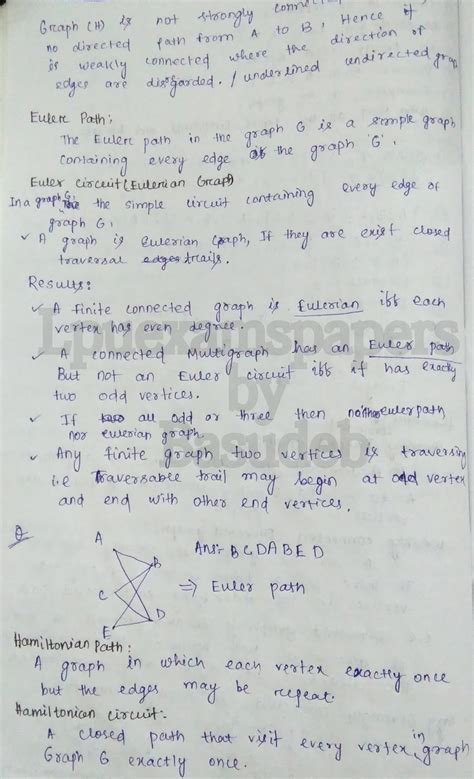 Graph (H) is not strongly
no directed path from A to B, Hence it
is weakly connected where the direction of
edges are disregarded. / underlined undirected graph
Euler Path:
The Euler path in the graph G is a simple graph
containing every edge of the graph 'G'.
Euler circuit (Eulerian Graph)
In a graph G, the simple circuit containing every edge of
graph G.
✓ A graph is Eulerian Graph, If they are exist closed
traversal edges trails.
Results:
✓ A finite connected graph is Eulerian iff each
vertex has even degree.
✓ A connected Multigraph has an Euler path
But not an Euler circuit iff if has exactly
two odd vertices.
✓ If two all odd or three then neither euler path
nor eulerian graph.
✓ Any finite graph two vertices is traversing
i.e Traversable trail may begin at odd vertex
and end with other end vertices.
Lpuexamspapers
by
Basudeb
Q
A
B
C
D
E
Ans:- B C D A B E D
⇒ Euler path
Hamiltonian Path:
A graph in which each vertex exactly once
but the edges may be repeat.
Hamiltonian circuit:-
A closed path that visit every vertex in graph
Graph G exactly once.